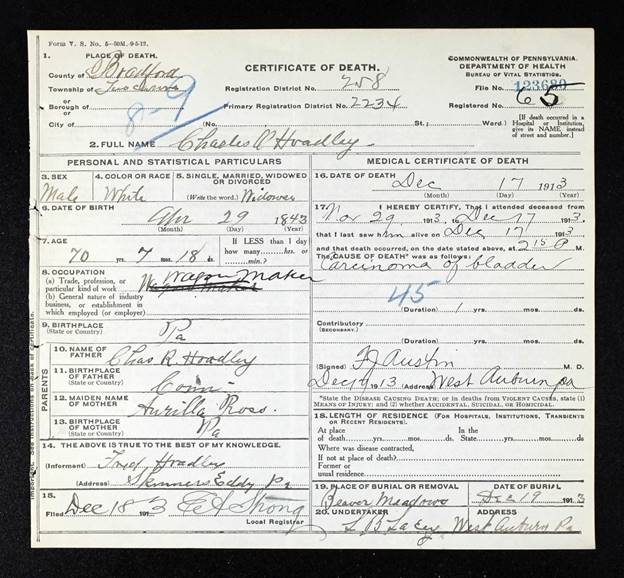 Form V. S. No. 5—50M. 9-5-12.
1. PLACE OF DEATH.
County of Bradford
Township of Tuscarora
or
Borough of
or
City of
8-9
CERTIFICATE OF DEATH.
Registration District No. 258
Primary Registration District No. 2234
(No. St.; Ward.)
COMMONWEALTH OF PENNSYLVANIA.
DEPARTMENT OF HEALTH
BUREAU OF VITAL STATISTICS.
File No. 123689
Registered No. 65
[If death occurred in a Hospital or Institution, give its NAME, instead of street and number.]
2. FULL NAME Charles R Hoadley
PERSONAL AND STATISTICAL PARTICULARS
3. SEX
Male
4. COLOR OR RACE
White
5. SINGLE, MARRIED, WIDOWED OR DIVORCED
(Write the word.) Widower
6. DATE OF BIRTH
Apr 29 1843
(Month) (Day) (Year)
7. AGE
70 yrs. 7 mos. 18 ds.
If LESS than 1 day how many......hrs. or ......min.?
8. OCCUPATION
(a) Trade, profession, or particular kind of work Wagon Maker
(b) General nature of industry business, or establishment in which employed (or employer)
9. BIRTHPLACE
(State or Country) Pa
PARENTS
10. NAME OF FATHER Chas R. Hoadley
11. BIRTHPLACE OF FATHER
(State or Country) Conn
12. MAIDEN NAME OF MOTHER Aurilla Ross
13. BIRTHPLACE OF MOTHER
(State or Country) Pa
14. THE ABOVE IS TRUE TO THE BEST OF MY KNOWLEDGE.
(Informant) Fred Hoadley
(Address) Skinners Eddy Pa
15.
Filed Dec 18 1913 Strong
Local Registrar
MEDICAL CERTIFICATE OF DEATH
16. DATE OF DEATH
Dec 17 1913
(Month) (Day) (Year)
17. I HEREBY CERTIFY, That I attended deceased from
Nov 29 1913, to Dec 17 1913.
that I last saw him alive on Dec 17 1913
and that death occurred, on the date stated above, at 2 15 P M.
The CAUSE OF DEATH* was as follows:
Carcinoma of bladder
45
(Duration) 1 yrs. mos. ds.
Contributory
(SECONDARY.)
(Duration) yrs. mos. ds.
(Signed) F J Austin M. D.
1913 (Address) West Auburn Pa
*State the DISEASE CAUSING DEATH; or in deaths from VIOLENT CAUSES, state (1) MEANS OF INJURY; and (2) whether ACCIDENTAL, SUICIDAL, or HOMICIDAL.
18. LENGTH OF RESIDENCE (FOR HOSPITALS, INSTITUTIONS, TRANSIENTS OR RECENT RESIDENTS).
At place of death......yrs......mos......ds. In the State......yrs......mos......ds.
Where was disease contracted,
If not at place of death?
Former or usual residence
19. PLACE OF BURIAL OR REMOVAL
Beaver Meadows
DATE OF BURIAL
Dec 19 1913
20. UNDERTAKER
L B Lacey
ADDRESS
West Auburn Pa